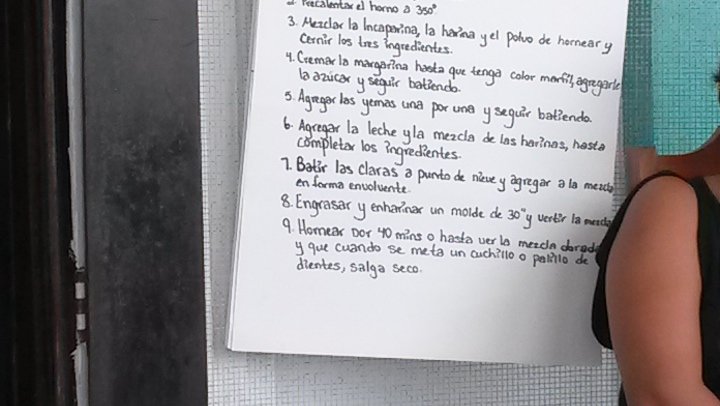 2. Precalentar el horno a 350°
3. Mezclar la Incaparina, la harina y el polvo de hornear y
cernir los tres ingredientes.
4. Cremar la margarina hasta que tenga color marfil, agregarle
la azúcar y seguir batiendo.
5. Agregar las yemas una por una y seguir batiendo.
6. Agregar la leche y la mezcla de las harinas, hasta
completar los ingredientes.
7. Batir las claras a punto de nieve y agregar a la mezcla
en forma envolvente.
8. Engrasar y enharinar un molde de 30" y vertir la mezcla
9. Hornear por 40 mins o hasta ver la mezcla dorada
y que cuando se meta un cuchillo o palillo de
dientes, salga seco.